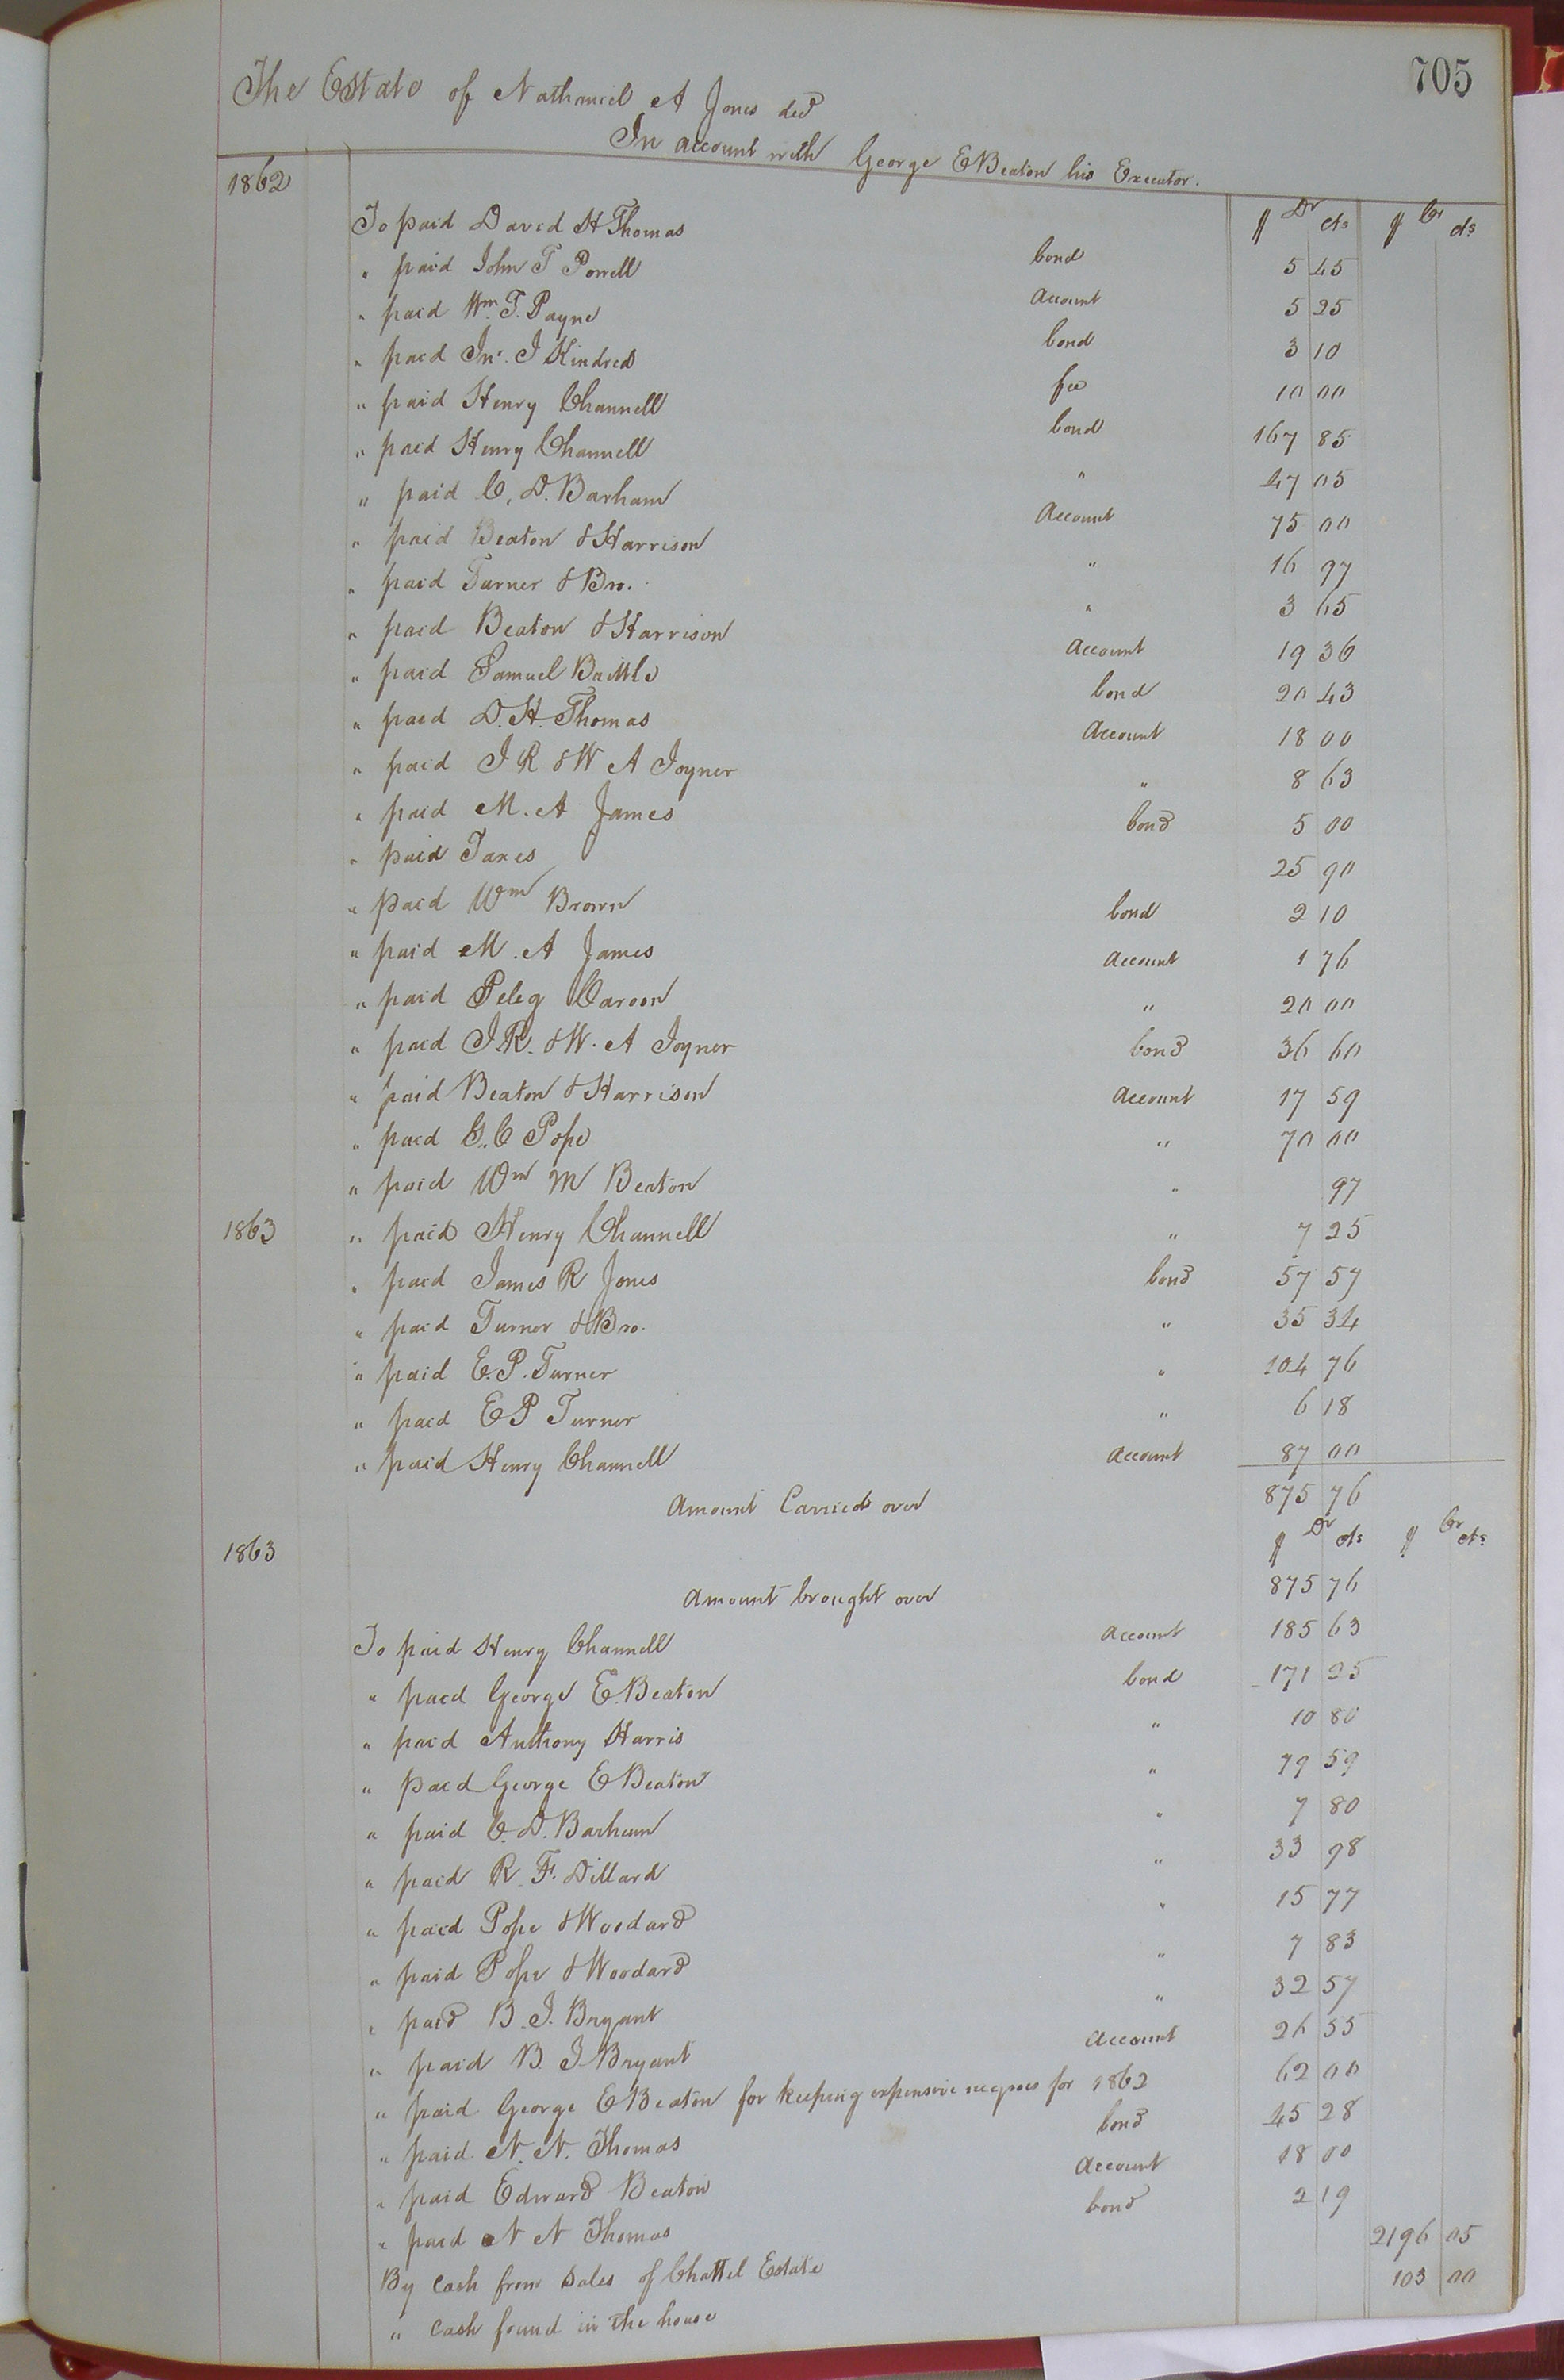 705
The Estate of Nathaniel A Jones decd
In account with George E Beaton his Executor.
1862 $ Dr cts $ Cr cts
To paid David H Thomas bond 5 45
" paid John T Powell Account 5 25
" paid Wm. T. Payne bond 3 10
" paid Jno. J Kindred fee 10 00
" paid Henry Channell bond 167 85
" paid Henry Channell " 47 05
" paid C. D. Barham Account 75 00
" paid Beaton & Harrison " 16 97
" paid Turner & Bro. " 3 65
" paid Beaton & Harrison Account 19 36
" paid Samuel Brittle bond 20 43
" paid D. H. Thomas Account 18 00
" paid J R & W A Joyner " 8 63
" paid M. A James bond 5 00
" paid Taxes 25 90
" paid Wm Brown bond 2 10
" paid M. A James Account 1 76
" paid Peleg " 20 00
" paid J R. & W. A Joyner bond 36 60
" paid Beaton & Harrison Account 17 59
" paid G. C Pope " 70 00
" paid Wm M Beaton " 97
1863 " paid Henry Channell " 7 25
" paid James R Jones bond 57 57
" paid Turner & Bro. " 35 34
" paid E. P. Turner " 104 76
" paid E P Turner " 6 18
" paid Henry Channell Account 87 00
Amount Carried over 875 76
1863 $ Dr cts $ Cr cts
Amount brought over 875 76
To paid Henry Channell Account 185 63
" paid George E. Beaton bond 171 25
" paid Anthony Harris " 10 80
" paid George E Beaton " 79 59
" paid C. D. Barham " 7 80
" paid R. F. Dillard " 33 98
" paid Pope & Woodard " 15 77
" paid Pope & Woodard " 7 83
" paid B. J. Bryant " 32 57
" paid B. J Bryant Account 26 55
" paid George E Beaton for keeping expensive negroes for 1862 62 00
" paid N. N. Thomas bond 45 28
" paid Edward Beaton Account 18 00
" paid N N Thomas bond 2 19
By Cash from Sales of Chattel Estate 2196 05
" Cash found in the house 103 00